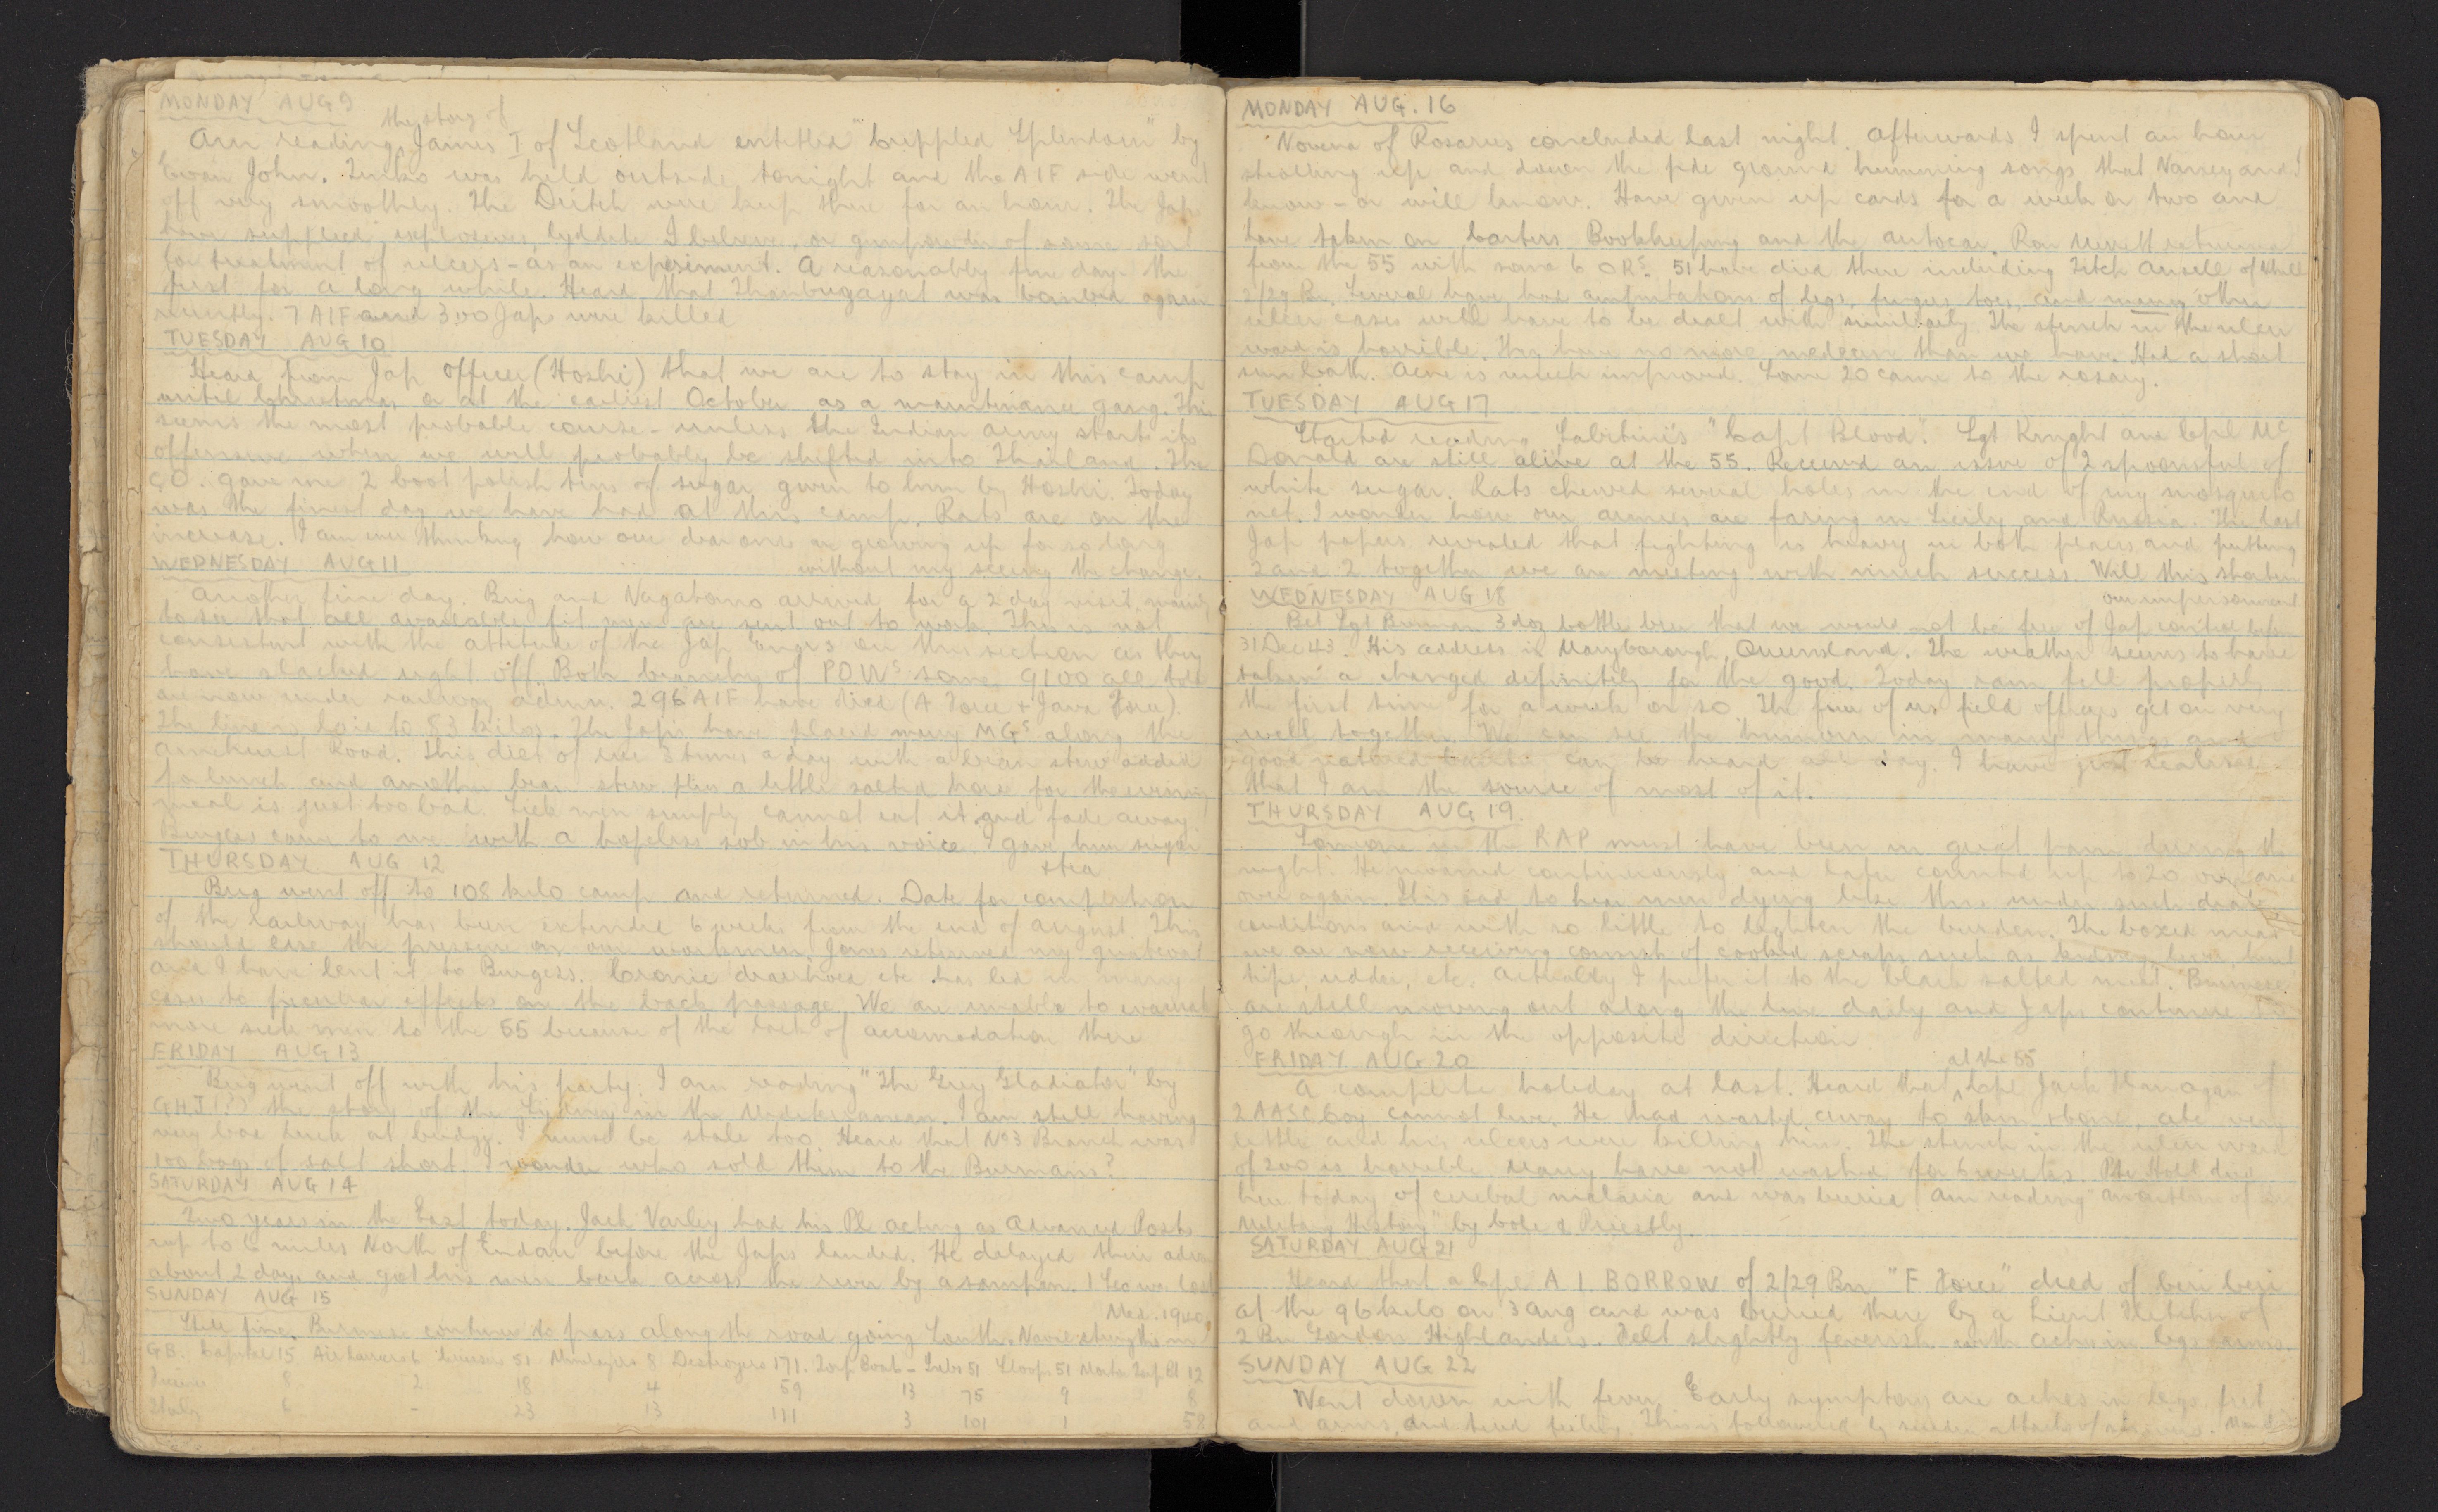 MONDAY AUG 9
the story of
Am reading James I of Scotland entitled "Crippled Splendour" by
Evan John. Tenko was held outside tonight and the AIF side went
off very smoothly. The Dutch were kept there for an hour. The Japs
have supplied explosives, lyddite I believe, or gunpowder of some sort
for treatment of ulcers - as an experiment. A reasonably fine day - the
first for a long while. Heard that Thanbuyayat was bombed again
recently. 7 AIF and 300 Japs were killed
TUESDAY AUG 10
Heard from Jap Officer (Hoshi) that we are to stay in this camp
until Christmas or at the earliest October as a maintenance gang. This
seems the most probable course - unless the Indian army starts its
offensive when we will probably be shifted into Thailand. The
CO. gave me 2 boot polish tins of sugar given to him by Hoshi. Today
was the finest day we have had at this camp. Rats are on the
increase. I am ever thinking how our dear ones are growing up for so long
without my seeing the change.
WEDNESDAY AUG 11
Another fine day. Brig and Nagatomo arrived for a 2 day visit, mainly
to see that all available fit men are sent out to work. This is not
consistent with the attitude of the Jap Engrs on this section as they
have slacked right off. Both branches of POWs some 9100 all told
are now under railway admin. 296 AIF have died (A Force + Java Force).
The line is laid to 83 kilos. The Japs have placed many MGs along the
Amehurst Road. This diet of rice 3 times a day with a bean stew added
for lunch and another bean stew plus a little salted horse for the evening
meal is just too bad. Sick men simply cannot eat it and fade away.
Burgess came to me with a hopeless sob in his voice. I gave him sugar
+ tea
THURSDAY AUG 12
Brig went off to 108 kilo camp and returned. Date for completion
of the railway has been extended 6 weeks from the end of August. This
should ease the pressure on our workmen. Jones returned my greatcoat
and I have lent it to Burgess. Cronic diaerhoea etc has led in many
cases to peculiar effects on the back passage. We are unable to evacuate
more sick men to the 55 because of the lack of accomodation there
FRIDAY AUG 13
Brig went off with his party. I am reading "The Grey Gladiator" by
G.H.J (?) the story of the Sydney in the Mediterranean. I am still having
very bad luck at bridge. I must be stale too. Heard that No 3 Branch was
100 bags of salt short. I wonder who sold them to the Burmans?
SATURDAY AUG 14
Two years in the East today. Jack Varley had his Pl acting as Advanced Posts
up to 6 miles North of Endau before the Japs landed. He delayed their
about 2 days and got his men back across the river by a sampan. 1 Sec was lost
SUNDAY AUG 15
Still fine. Burmese continue to pass along the road going South. Naval strengths in
Med. 1940,
GB. Capital 15 Air Carriers 6 Cruisers 51 Minelayers 8 Destroyers 171. Torp Boats - Subs 51 Sloops 51 Motor Torp Bt 12
France 8 2 18 4 59 13 75 9 8
Italy 6 - 23 13 111 3 101 1 58
MONDAY AUG. 16
Novena of Rosaries concluded last night. Afterwards I spent an hour
strolling up and down the pde ground humming songs that Nancy and I
know - or will know. Have given up cards for a week or two and
have taken on Carters Bookkeeping and the autocar. Ron Merrett returned
from the 55 with some 6 ORs. 51 have died there including Fitch Ansell of
2/29 Bn. Several have had amputations of legs, fingers, toes, and many other
ulcer cases will have to be dealt with similarly. The stench in the ulcer
ward is horrible. They have no more medecine than we have. Had a short
sun bath. Acne is much improved. Some 20 came to the rosary.
TUESDAY AUG 17
Started reading Sabitini's "Capt Blood". Sgt Knight and Cpl Mc
Donald are still alive at the 55. Received an issue of 2 spoonsful of
white sugar. Rats chewed several holes in the end of my mosquito
net. I wonder how our armies are faring in Sicily and Russia. The last
Jap papers revealed that fighting is heavy in both places and putting
2 and 2 together we are meeting with much success. Will this shorten
our imprisonment
WEDNESDAY AUG 18
Bet Sgt 3 doz bottles beer that we would not be free of Jap control before
31 Dec 43. His address is Maryborough, Queensland. The weather seems to have
taken a changed definitely for the good. Today rain fell properly
the first time for a week or so. The few of us field officers get on very
well together. We can see the humour in many things and
good natured can be heard all day. I have just realised
that I am the source of most of it.
THURSDAY AUG 19.
Someone in the RAP must have been in great pain during the
night. He moaned continuously and later counted up to 20 over and
over again. It is sad to hear men dying like this under such
conditions and with so little to lighten the burden. The boxed meat
we are now receiving consist of cooked scraps such as kidney, liver,
tripe, udder, etc. Actually I prefer it to the black salted meat. Burmese
are still moving out along the line daily and Japs continue to
go through in the opposite direction
FRIDAY AUG 20
at the 55
A complete holiday at last. Heard that Cpl Jack Flanagan of
2 AASC Coy cannot live. He had wasted away to skin + bone, ate very
little and his ulcers were killing him. The stench in the ulcer ward
of 200 is horrible. Many have not washed for 6 weeks. Pte died
here today of cerebal malaria and was buried. Am reading "An outline of
Military History" by Cole & Priestly.
SATURDAY AUG 21
Heard that a Cpl A I BORROW of 2/29 Bn "F Force" died of beri beri
at the 96 kilo on 3 Aug and was buried there by a Lieut of
2 Bn Gordon Highlanders. Felt slightly feverish with aches in legs + arms.
SUNDAY AUG 22
Went down with fever. Early symptoms are aches in legs, feet
and arms, and tired feeling. This is followed by sudden attacks of